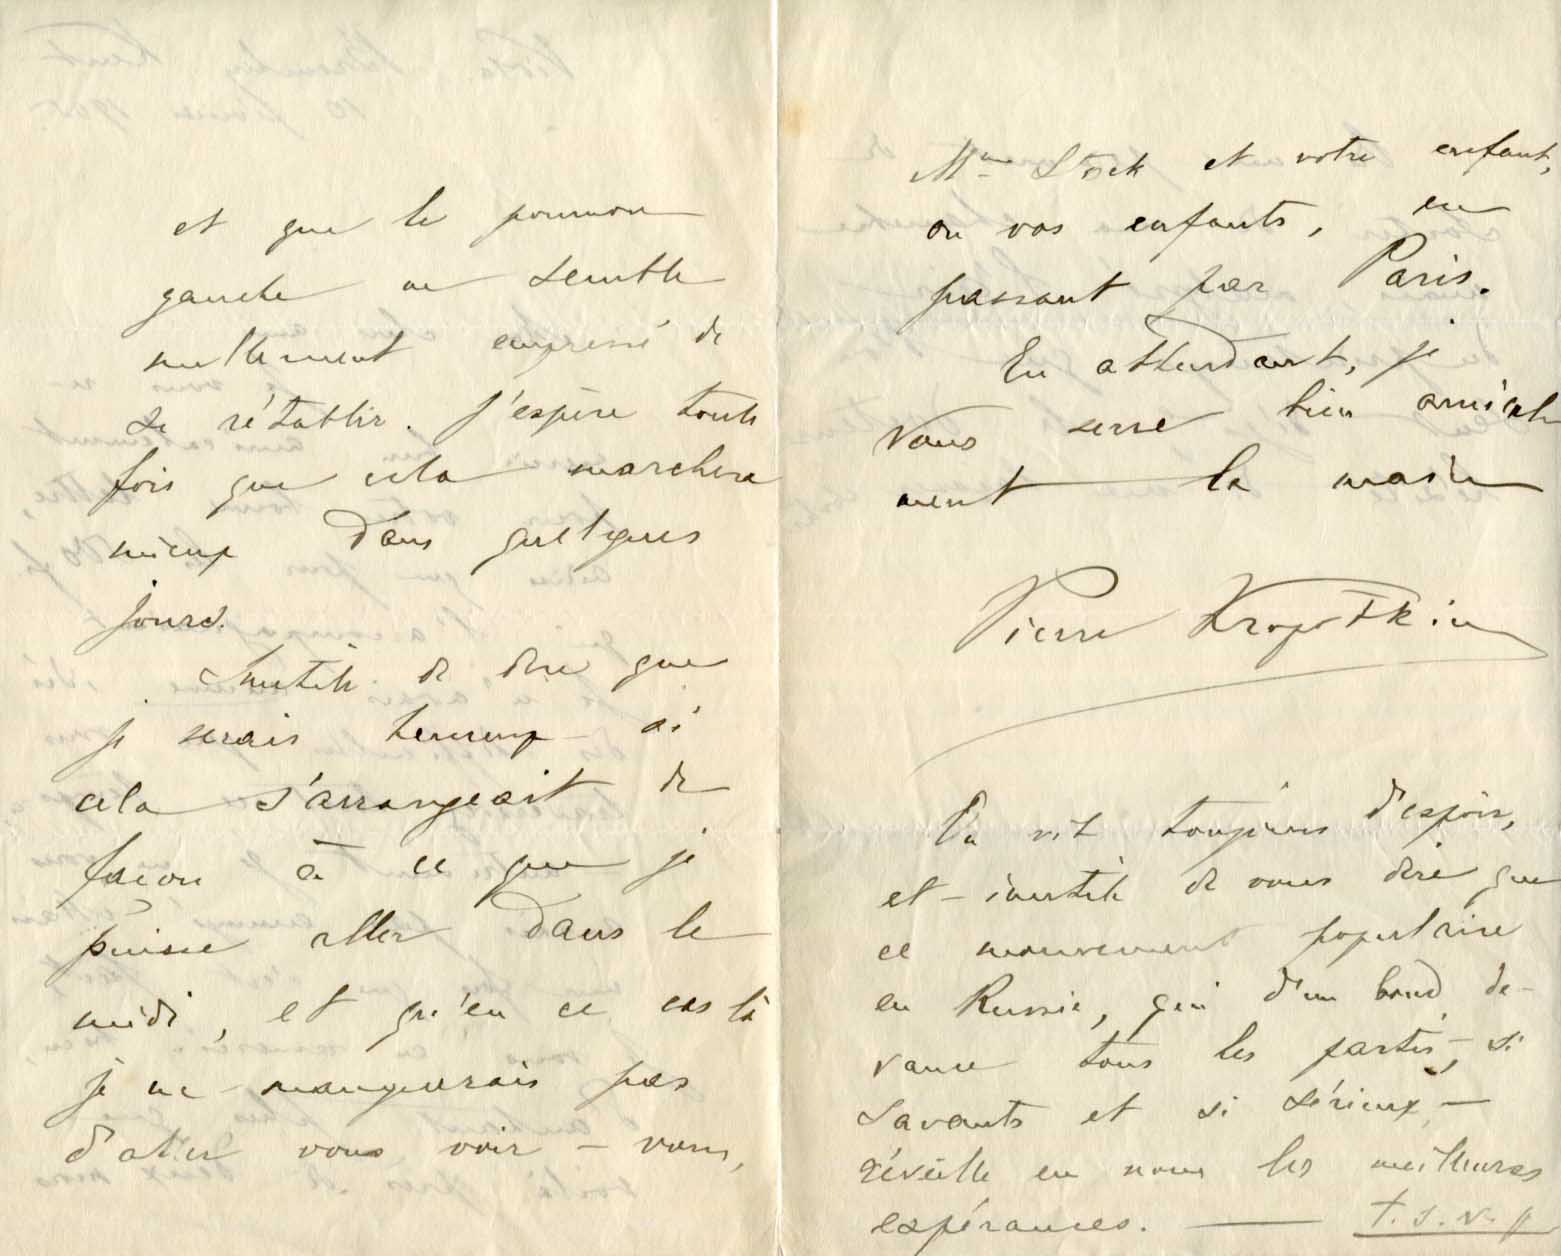 et que le poumon
gauche ne semble
nullement empressé de
se rétablir. J'espère toute
fois que cela marchera
mieux dans quelques
jours.
Inutile de dire que
je serais heureux si
cela s'arrangeait de
façon à ce que je
puisse aller dans le
midi, et qu'en ce cas là
je ne manquerais pas
d'aller vous voir – vous,
Mme Stock et votre enfant,
ou vos enfants, en
passant par Paris.
En attendant, je
vous serre bien amicale
ment la main
Pierre Kropotkine
On vit toujours d'espoir,
et – inutile de vous dire que
ce mouvement populaire
en Russie, qui d'un bond de-
vance tous les partis – si
savants et si sérieux, –
réveille en nous les meilleures
espérances. — T.S.V.P